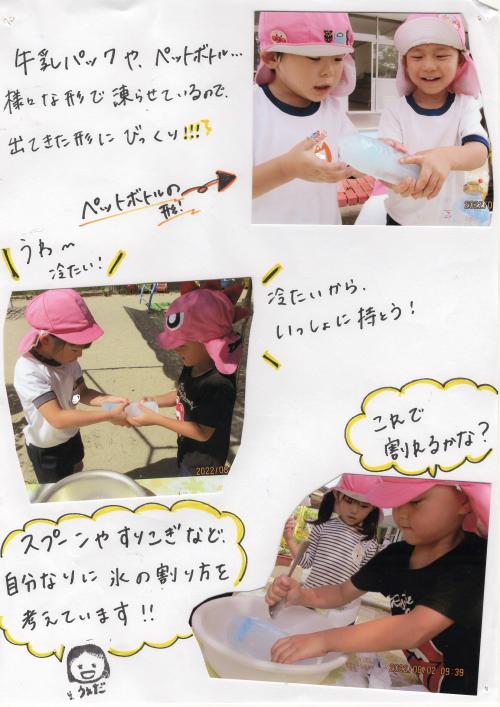 牛乳パックや、ペットボトル…
様々な形で凍らせているので、
出てきた形にびっくり!!!
ペットボトルの
形!
うわ〜
冷たい!
冷たいから、
いっしょに持とう!
これで
割れるかな?
スプーンやすりこぎなど、
自分なりに氷の割り方を
考えています!!
2022/09/02 09:39